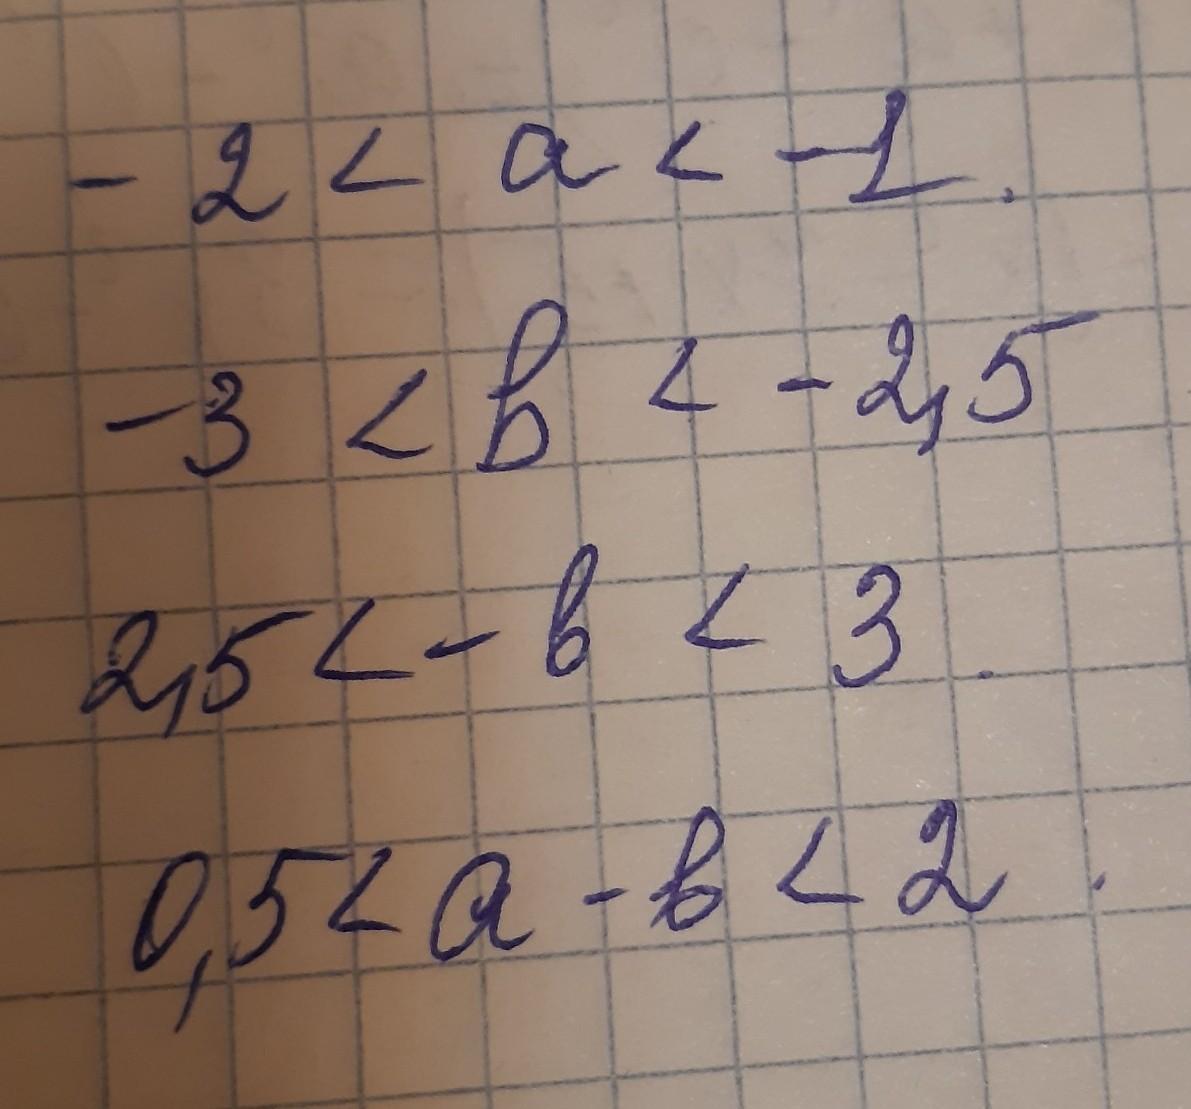 -2 < a < -1.
-3 < b < -2,5
2,5 < -b < 3.
0,5 < a - b < 2.